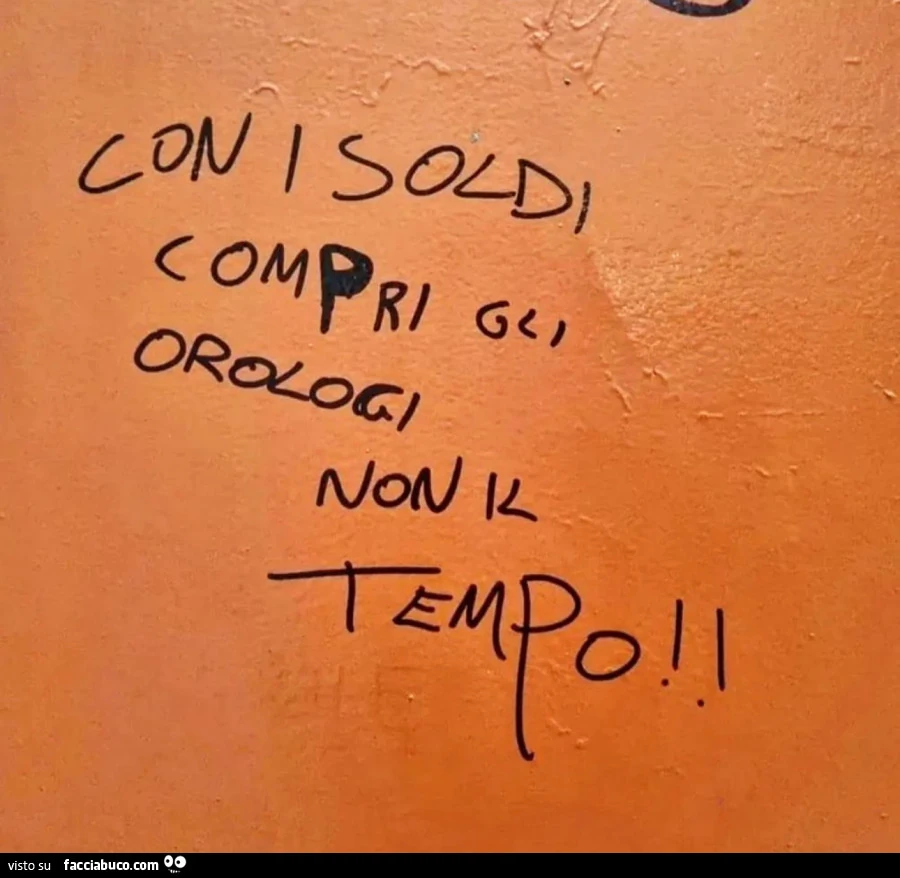 CON I SOLDI
COMPRI GLI
OROLOGI
NON IL
TEMPO!!
visto su facciabuco.com